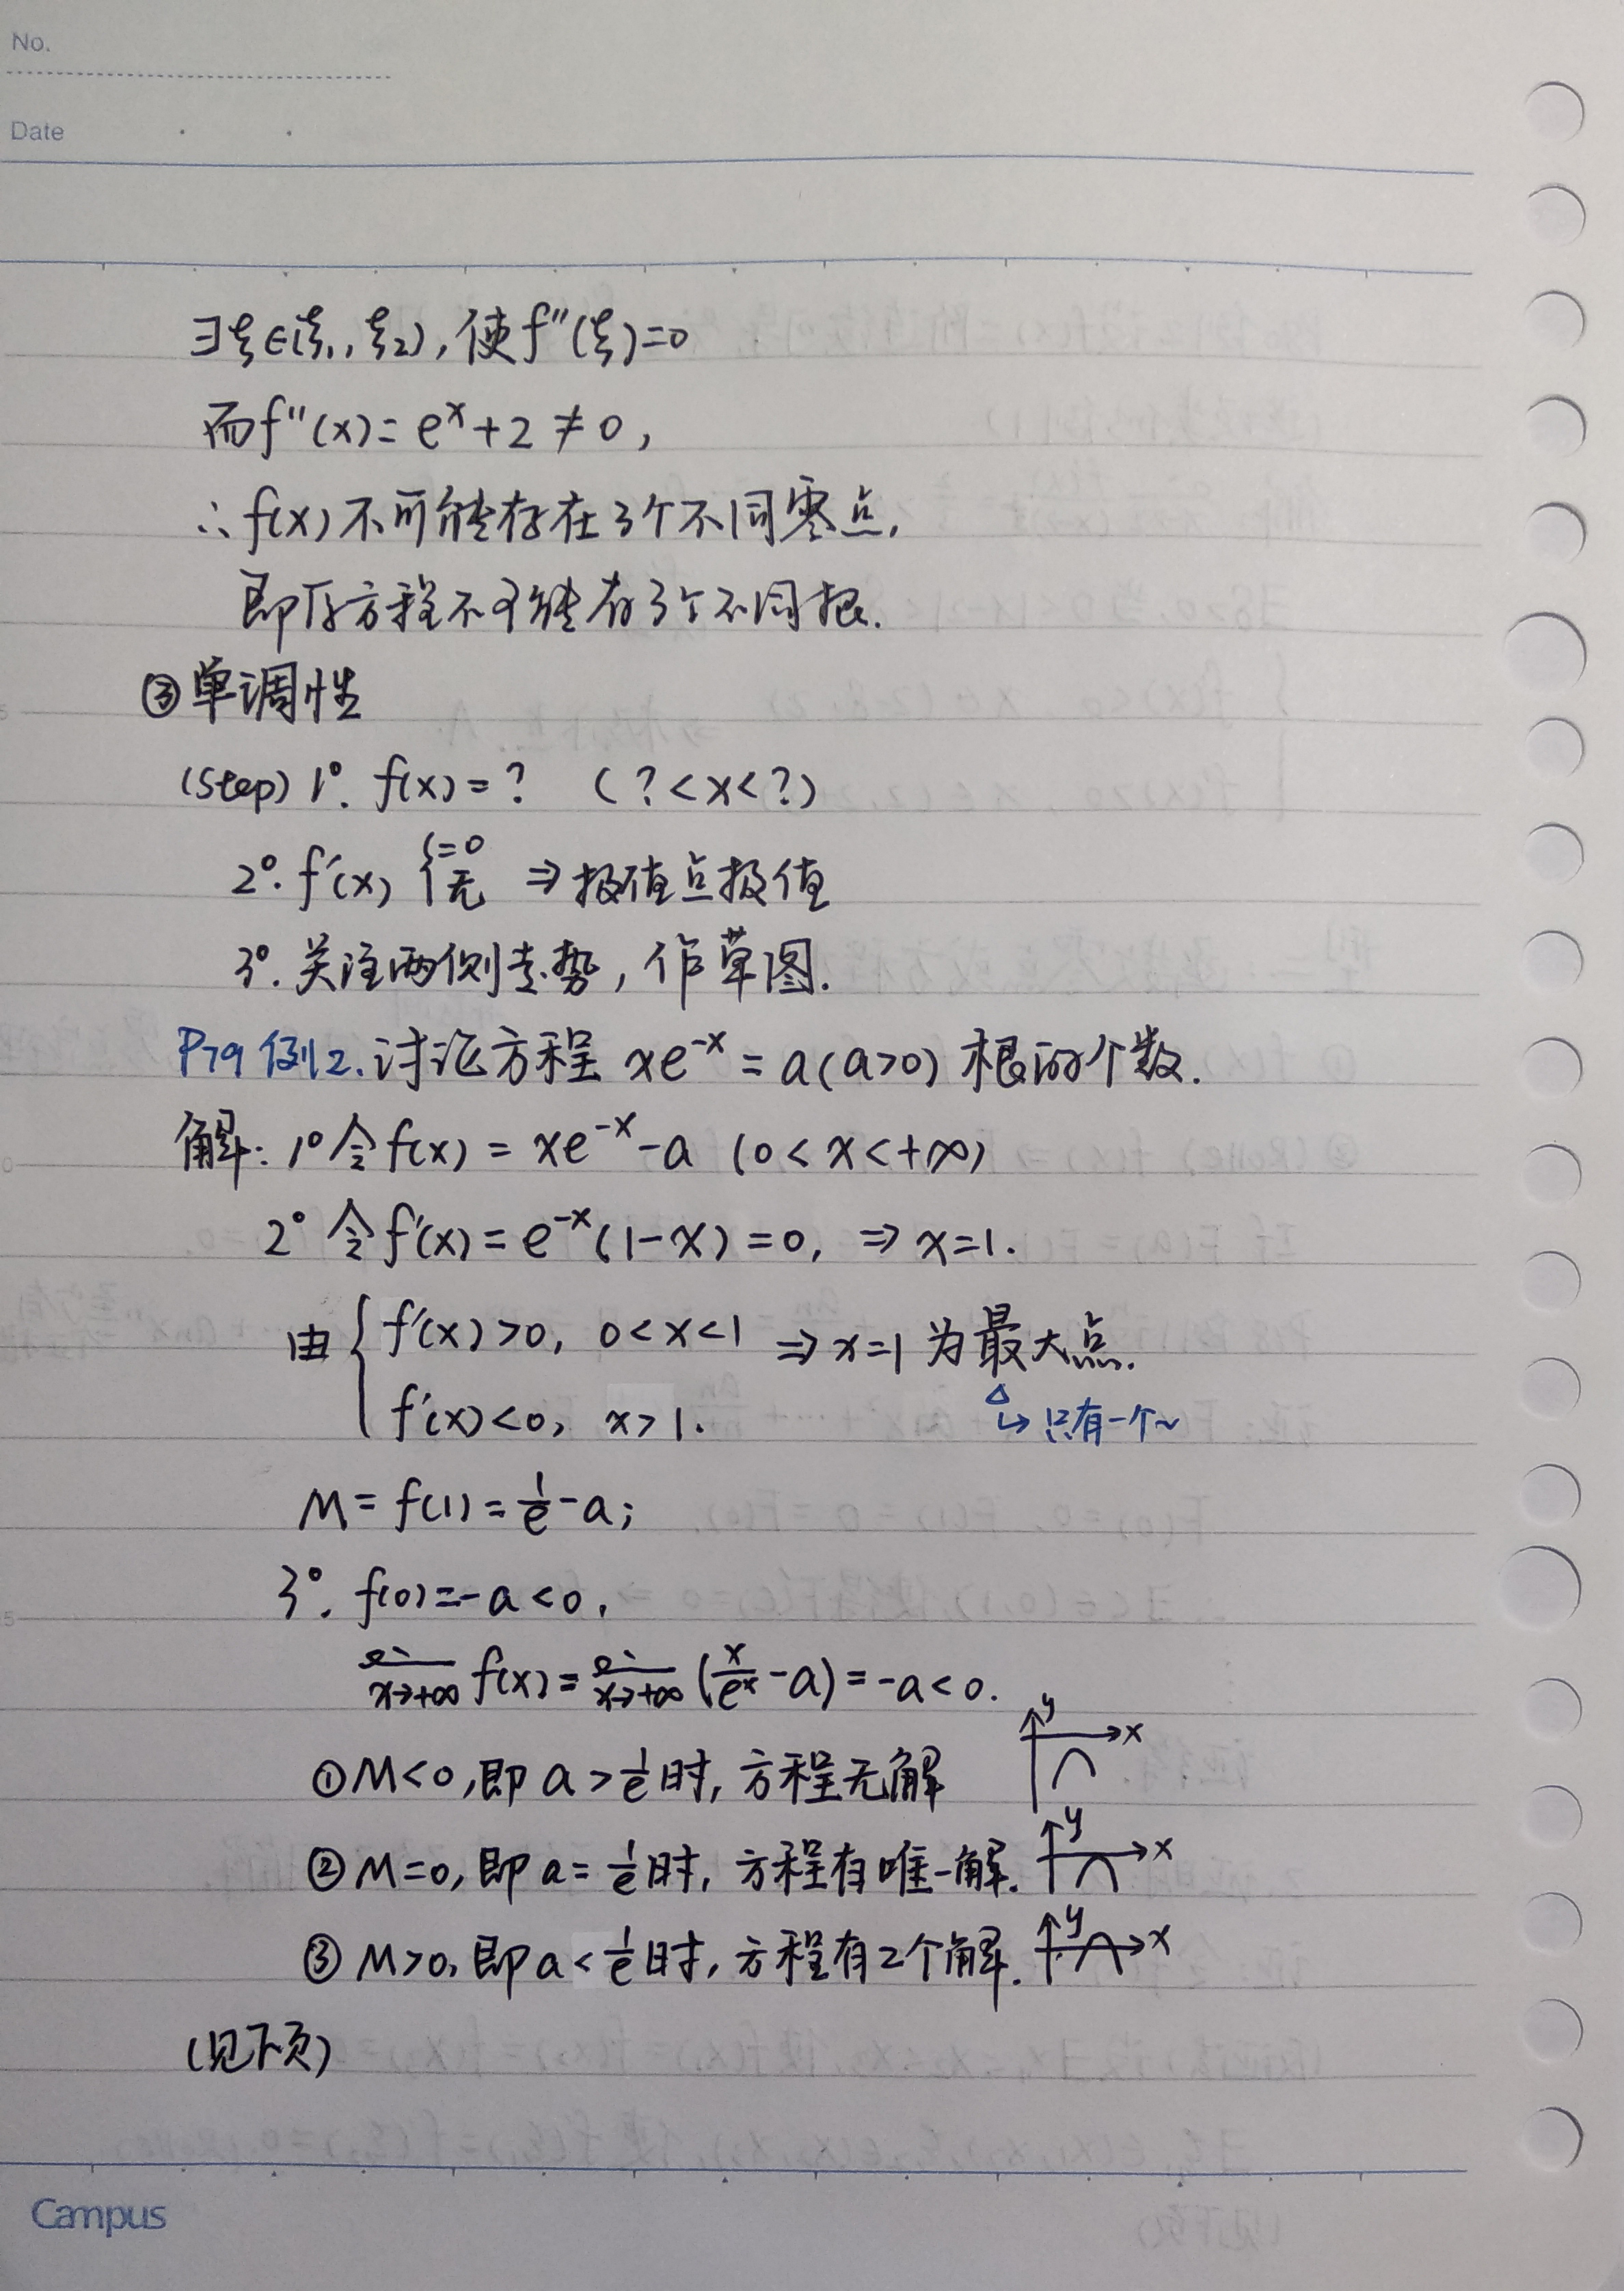 No.
Date
∃ξ∈(ξ₁,ξ₂),使f''(ξ)=0
而f''(x)=eˣ+2≠0,
∴f(x)不可能存在3个不同零点,
即原方程不可能有3个不同根.
③单调性
(Step) 1°. f(x)=? (?<x<?)
2°. f'(x) {=0 无 ⇒极值点极值
3°. 关注两侧走势,作草图.
P79 例2.讨论方程 xe⁻ˣ=a(a>0) 根的个数.
解: 1° 令f(x)=xe⁻ˣ-a (0<x<+∞)
2° 令f'(x)=e⁻ˣ(1-x)=0, ⇒x=1.
由 { f'(x)>0, 0<x<1 ⇒x=1 为最大点.
f'(x)<0, x>1.
△ ↳只有一个~
M=f(1)=1/e-a;
3°. f(0)=-a<0,
x→+∞ f(x)= x→+∞ (x/eˣ-a)=-a<0.
①M<0,即a>1/e时,方程无解
y x
②M=0,即a=1/e时,方程有唯一解.
y x
③M>0,即a<1/e时,方程有2个解.
y x
(见下页)
Campus